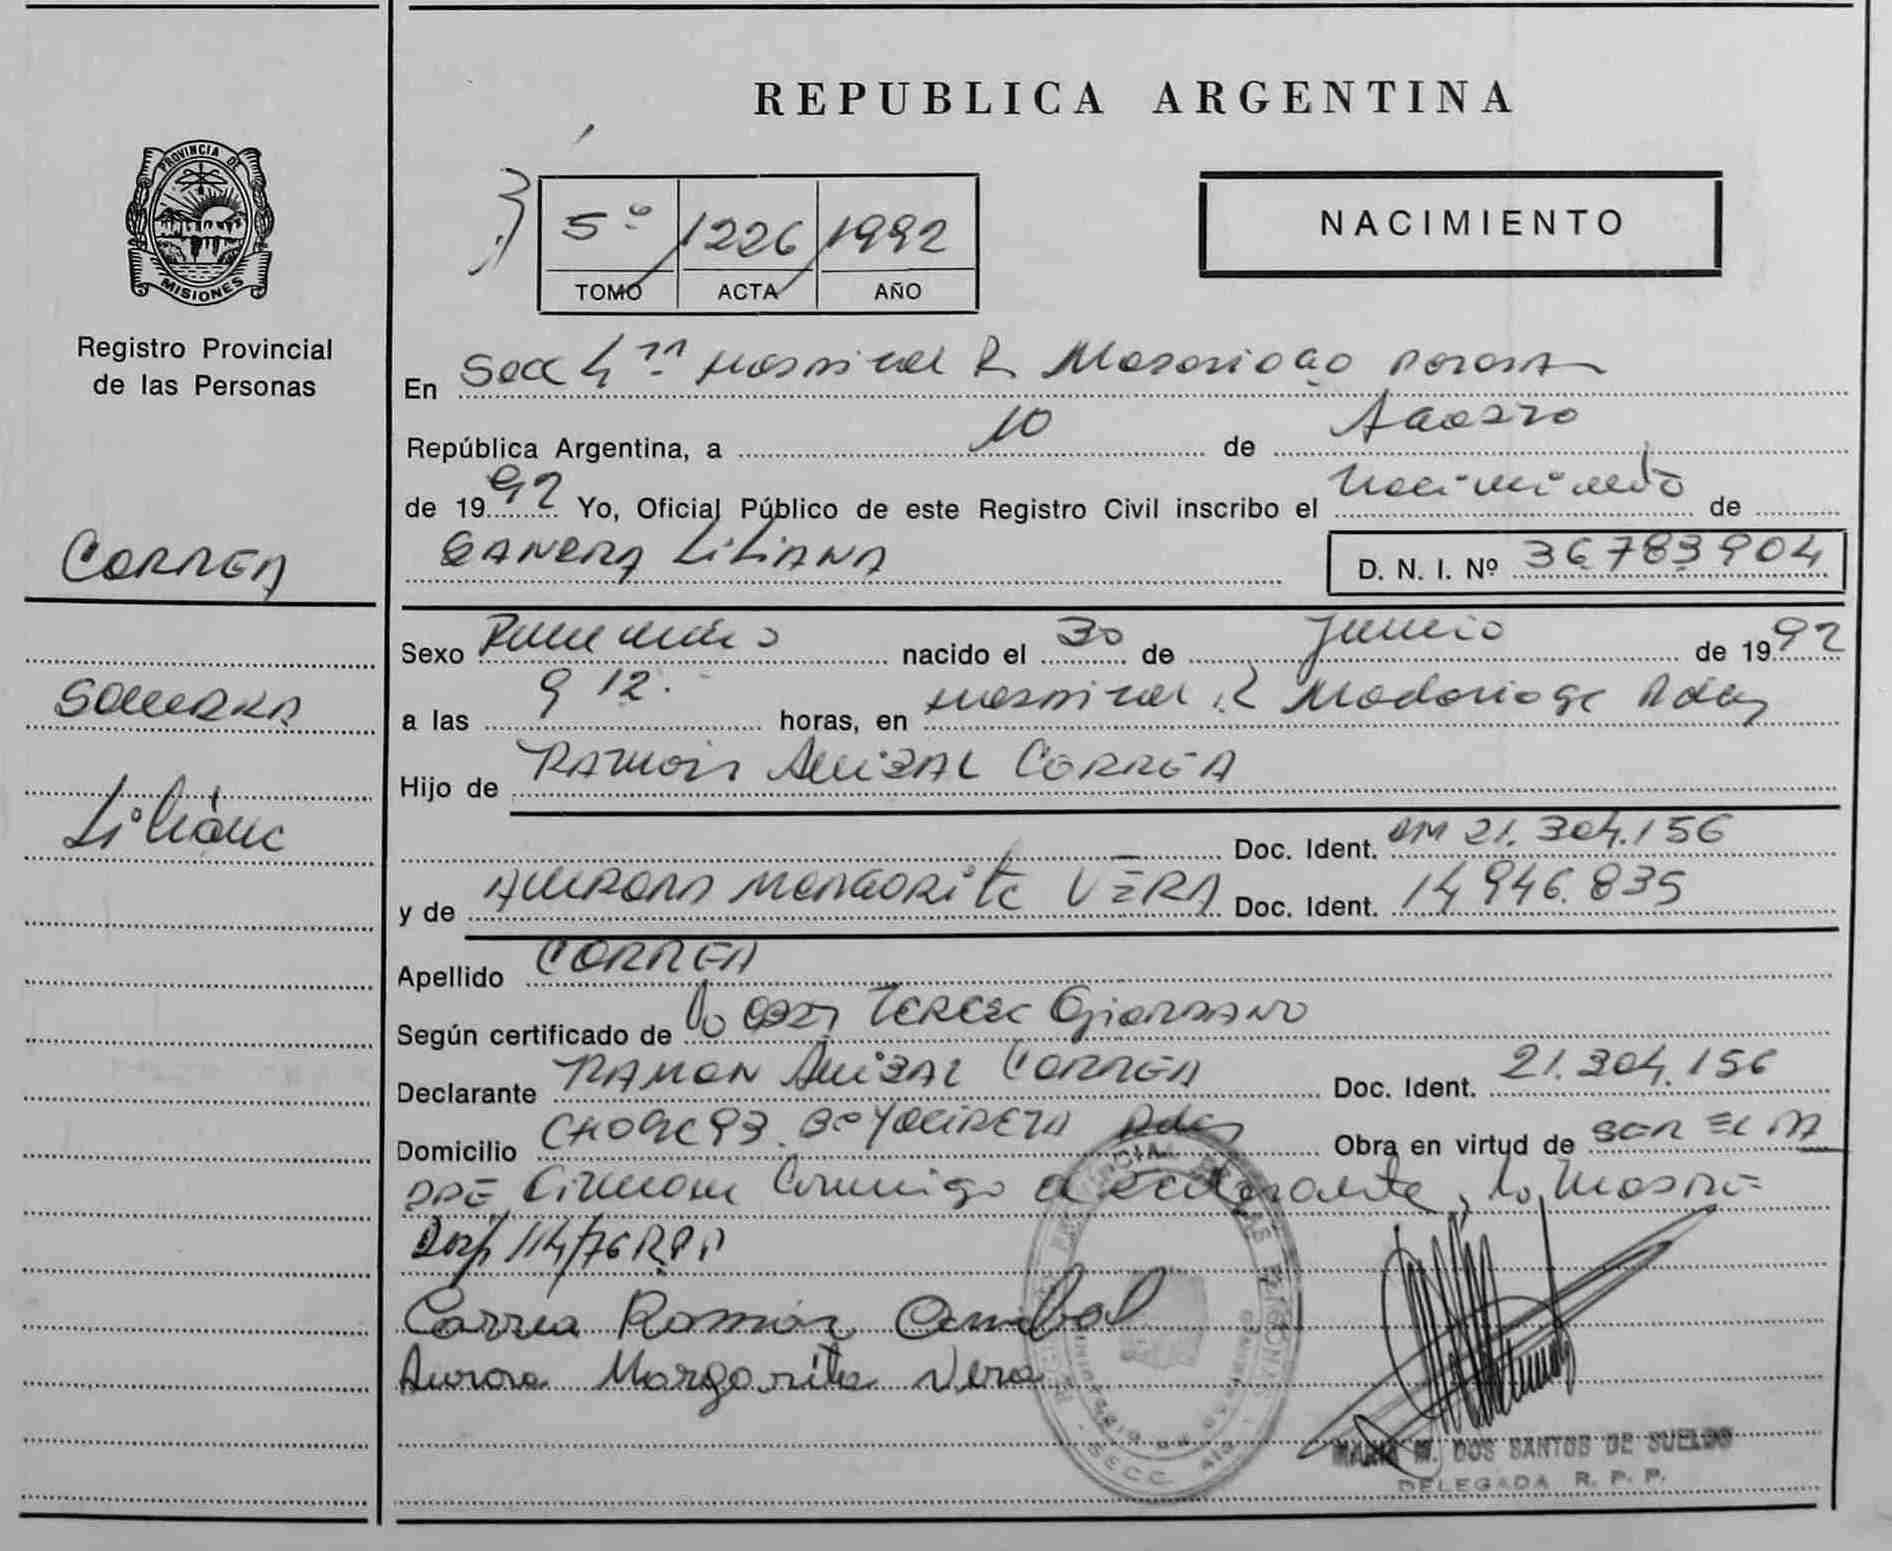 PROVINCIA DE
MISIONES
Registro Provincial
de las Personas
CORREA
Liliana
REPUBLICA ARGENTINA
5º 1226 1992
TOMO ACTA AÑO
NACIMIENTO
En Secc 4ª Hospital R. Madariaga Posadas
República Argentina, a 10 de Agosto
de 1992 Yo, Oficial Público de este Registro Civil inscribo el nacimiento de
LILIANA D. N. I. Nº 36783904
Sexo Femenino nacido el 30 de Junio de 1992
a las 9 12 horas, en Hospital R Madariaga Pdas
Hijo de RAMON ANIBAL CORREA
Doc. Ident. DM 21.304.156
y de AURORA MARGARITA VERA Doc. Ident. 14 946.835
Apellido CORREA
Según certificado de Teresa Giordano
Declarante RAMON ANIBAL CORREA Doc. Ident. 21.304.156
Domicilio CHO 9C 93 Bº YACIRETA Pdas Obra en virtud de SER EL PA
DRE Firman Conmigo el declarante, la Madre
Disp 114/76 R.P.P
Correa Ramón Anibal
Aurora Margarita Vera
MARIA M. DOS SANTOS DE SUELDO
DELEGADA R. P. P.